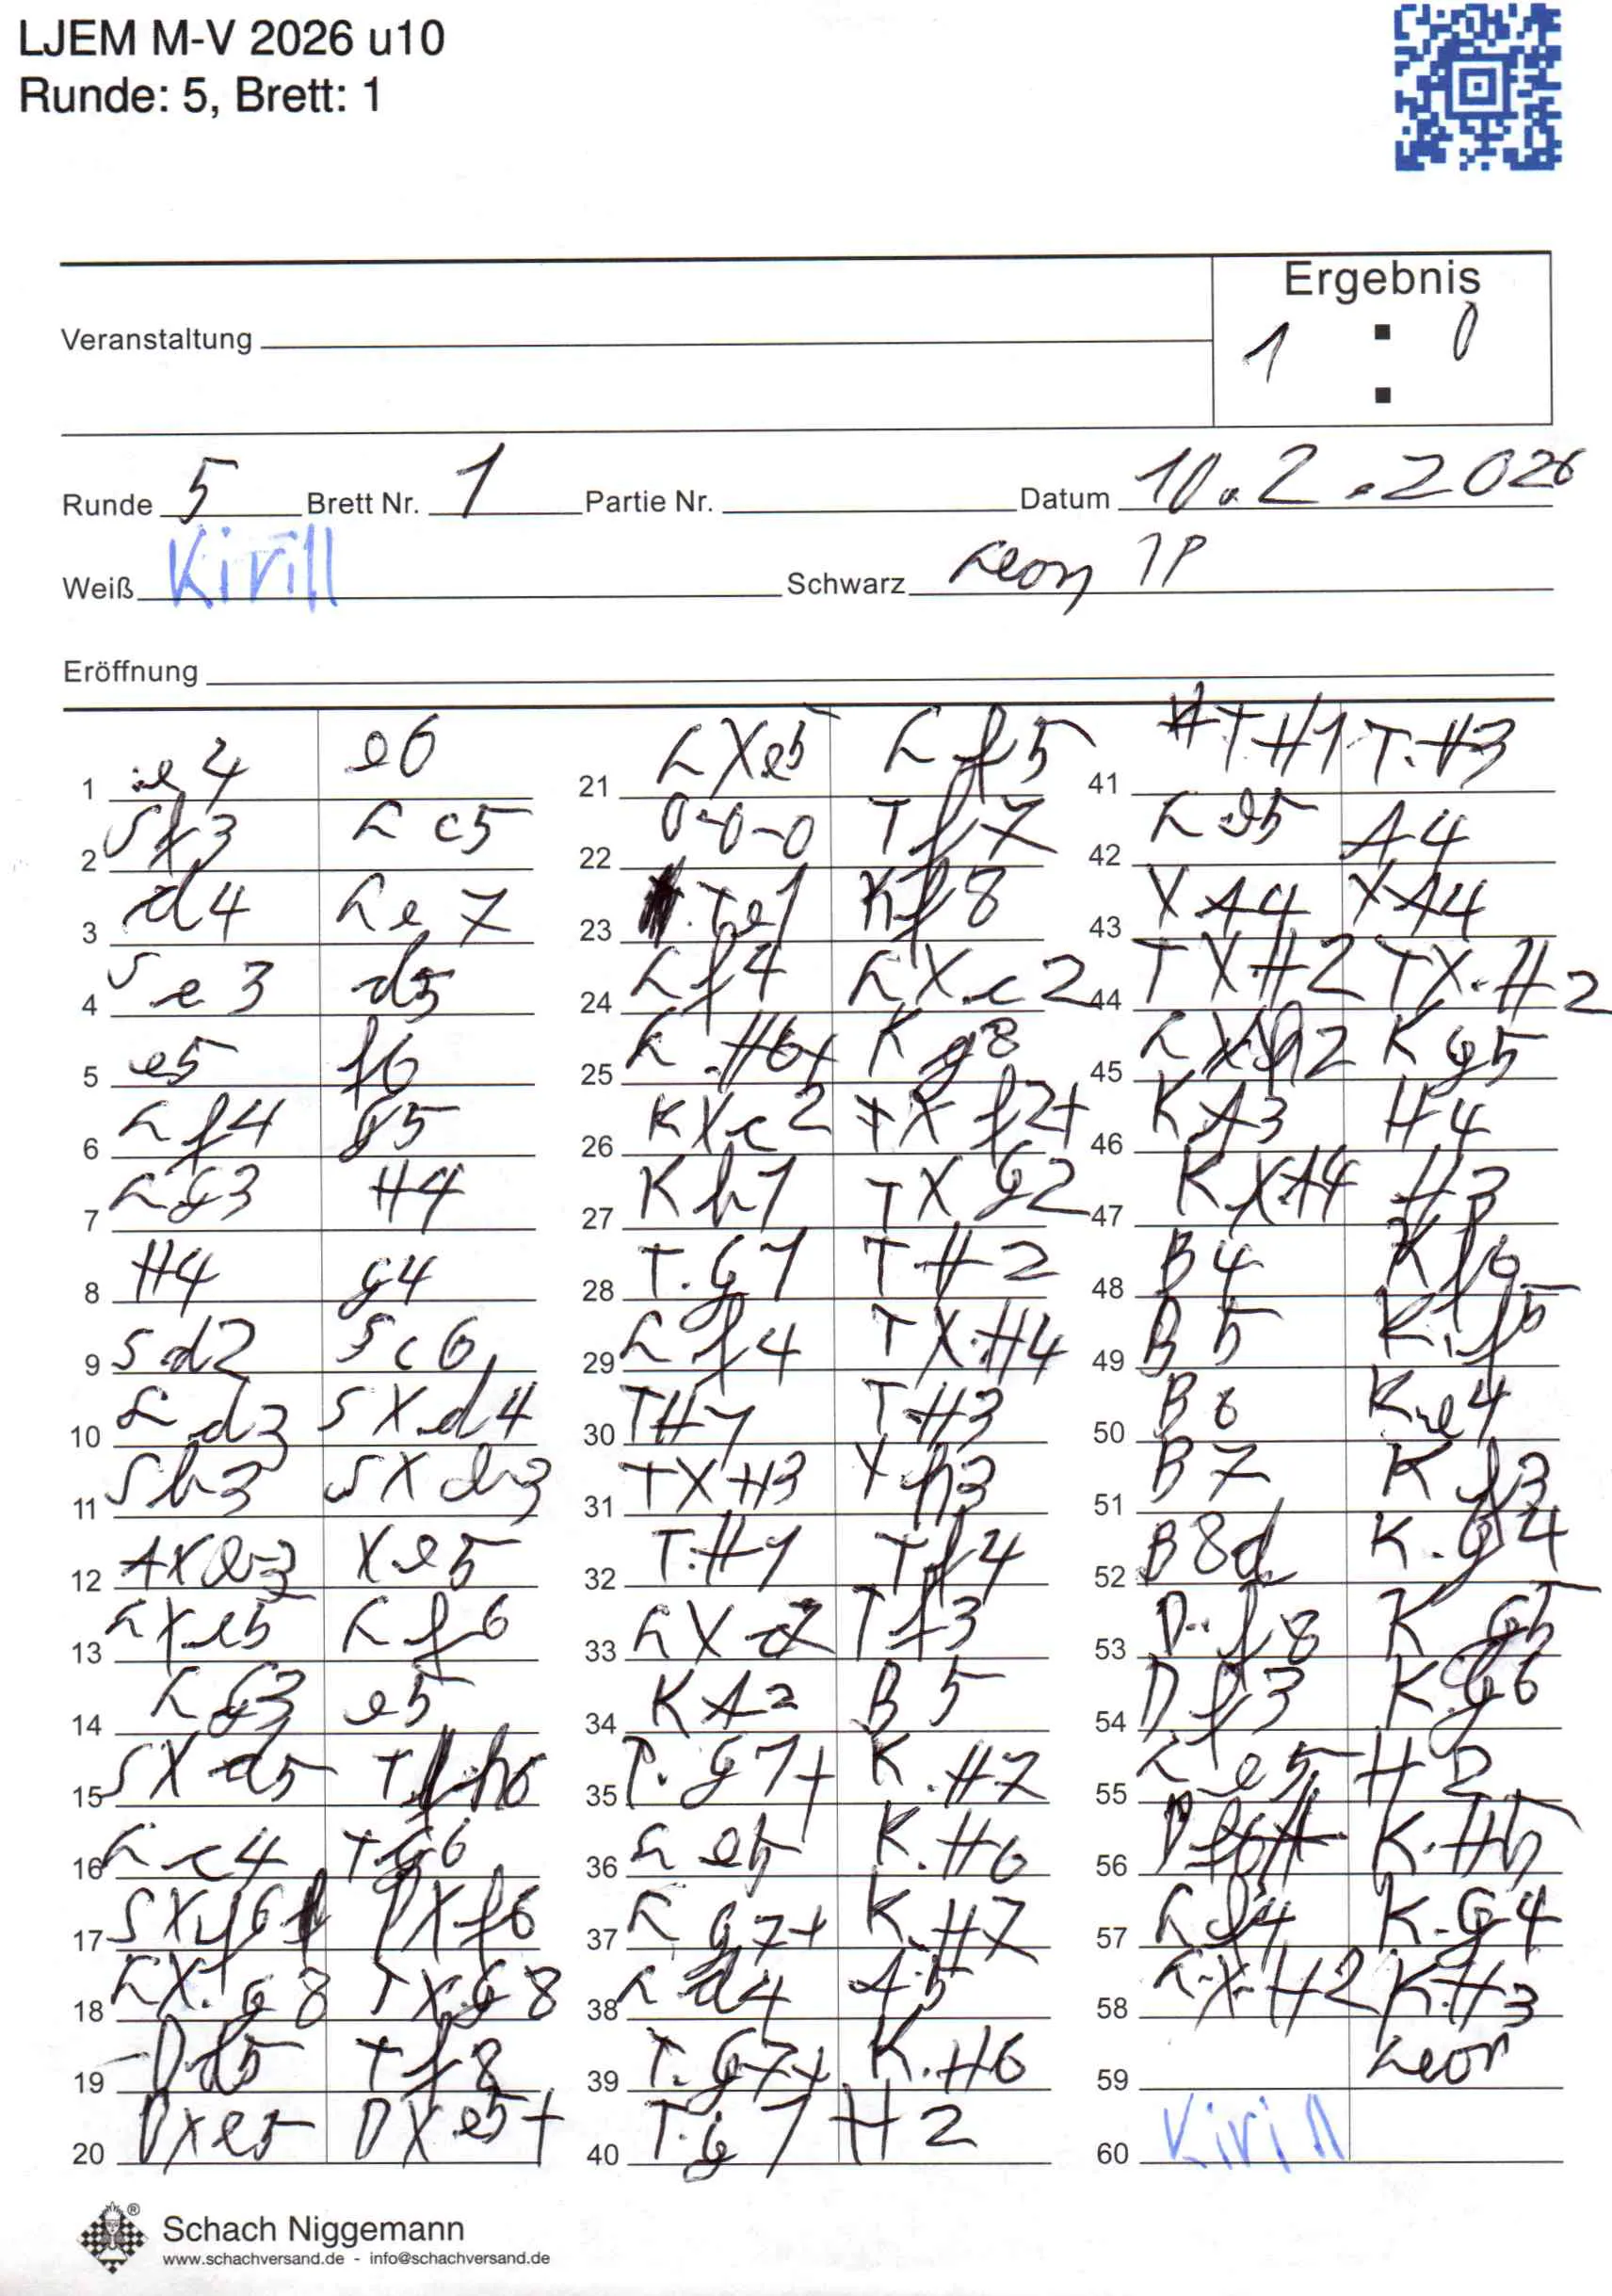 LJEM M-V 2026 u10
Runde: 5, Brett: 1
Ergebnis
Veranstaltung
1 : 0
Runde 5 Brett Nr. 1 Partie Nr. Datum 10.2.2026
Weiß Kirill Schwarz Leon
Eröffnung
1 e4 e6
2 Sf3 Lc5
3 d4 Le7
4 Se3 d5
5 e5 f6
6 Lf4 g5
7 Lg3 H4
8 H4 g4
9 Sd2 Sc6
10 Ld3 SXd4
11 Sb3 SXb3
12 AXb3 Xe5
13 LXe5 Lf6
14 Lg3 e5
15 SXd5 Th6
16 Lc4 TG6
17 SXf6 DXf6
18 LX.G8 TXG8
19 Dd5 Tf8
20 DXe5 DXe5+
21 LXe5 Lf5
22 0-0-0 Tf7
23 Te1 Kf8
24 Lf4 LXc2
25 L.H6+ Kg8
26 KXc2 TXf2+
27 Kb1 TXG2
28 T.G1 T H2
29 Lf4 TX.H4
30 TH1 T.H3
31 TXH3 Xh3
32 T.H1 Tf4
33 LXc7 Tf3
34 KA2 B5
35 T.g1+ K.H7
36 Le5 K.H6
37 Lg7+ K.H7
38 Ld4 A5
39 T.G7+ K.H6
40 T.G1 H2
41 TH1 T.H3
42 Le5 A4
43 XA4 XA4
44 TXH2 TX.H2
45 LXh2 Kg5
46 KA3 H4
47 KXA4 H3
48 B4 Kf5
49 B5 K.f5
50 B6 Ke4
51 B7 Kf3
52 B8d K.g4
53 D.f8 K G5
54 Df3 K.g6
55 Le5 H2
56 Df6+ K.H5
57 Lf4 K.G4
58 L.X.H2 K.H3
59 Leon
60 Kirill
®
Schach Niggemann
www.schachversand.de - info@schachversand.de